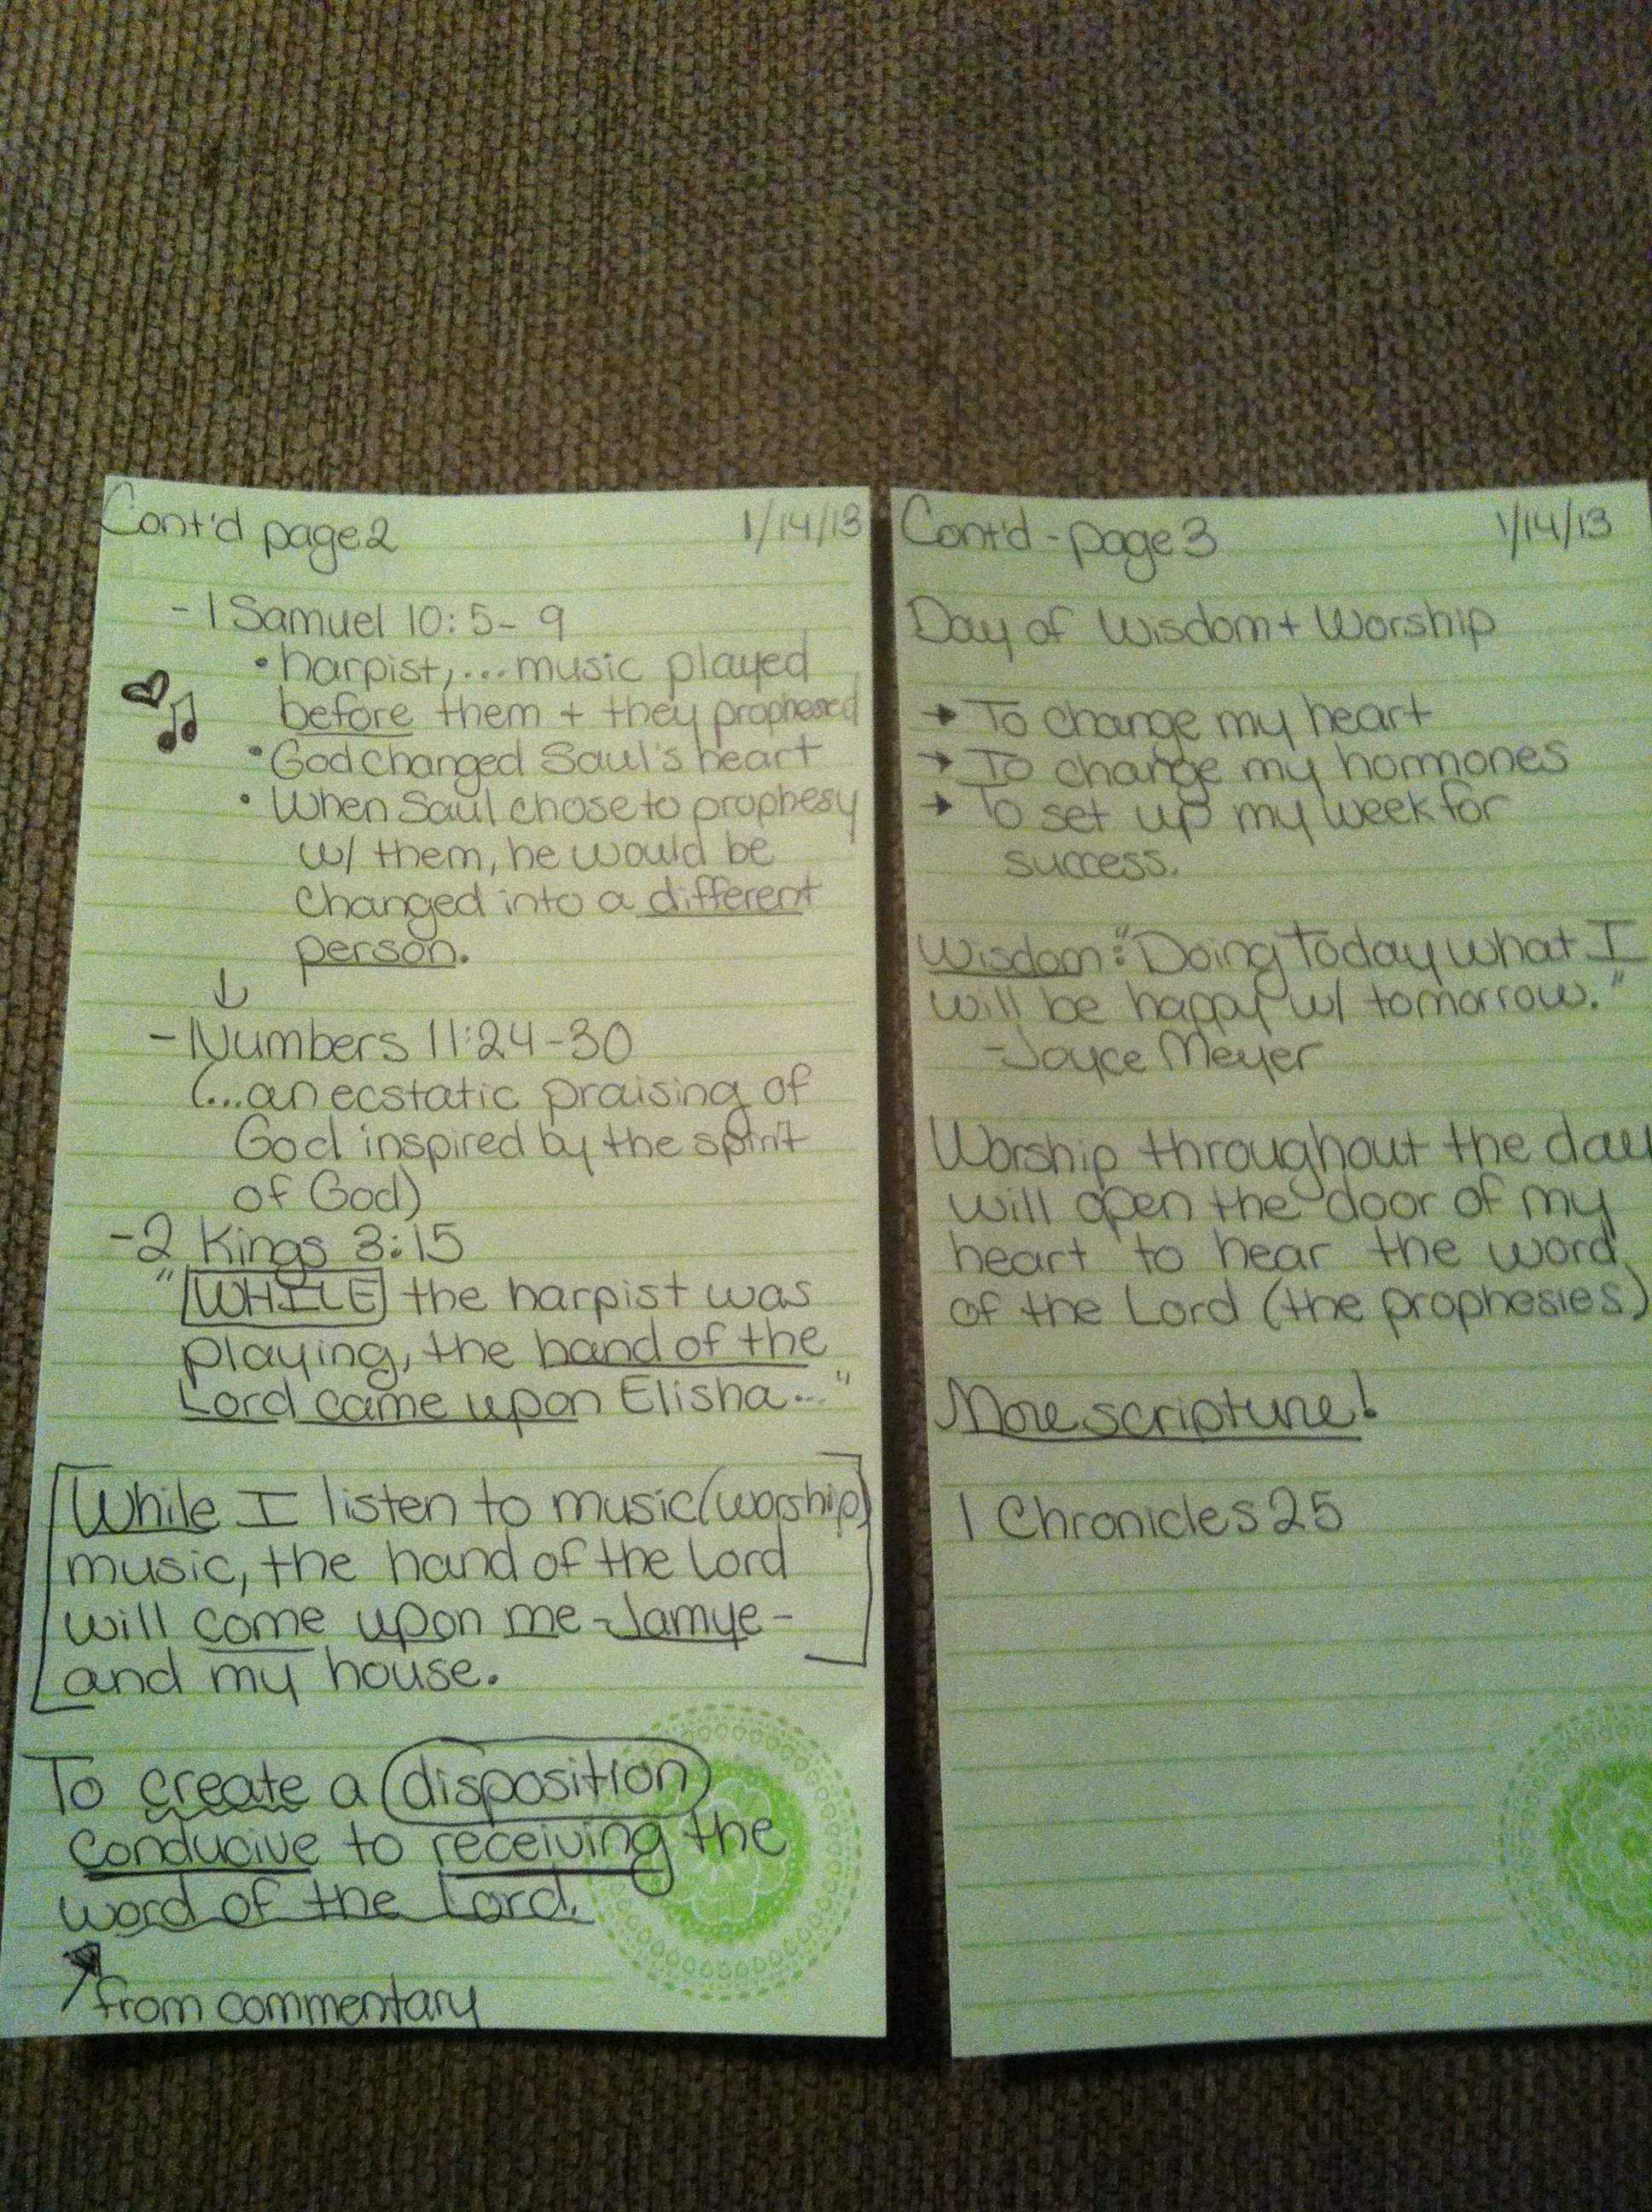 Cont'd page 2 1/14/13
- 1 Samuel 10:5-9
• harpist,... music played
before them + they prophesied
• God changed Saul's heart
• When Saul chose to prophesy
w/ them, he would be
changed into a different
person.
↓
- Numbers 11:24-30
(...an ecstatic praising of
God inspired by the spirit
of God)
- 2 Kings 3:15
"WHILE the harpist was
playing, the hand of the
Lord came upon Elisha..."
While I listen to music (worship)
music, the hand of the Lord
will come upon me - Jamye -
and my house.
To create a disposition
conducive to receiving the
word of the Lord.
from commentary
Cont'd - page 3 1/14/13
Day of Wisdom + Worship
→ To change my heart
→ To change my hormones
→ To set up my week for
success.
Wisdom: "Doing today what I
will be happy w/ tomorrow."
- Joyce Meyer
Worship throughout the day
will open the door of my
heart to hear the word
of the Lord (the prophesies)
More scripture!
1 Chronicles 25